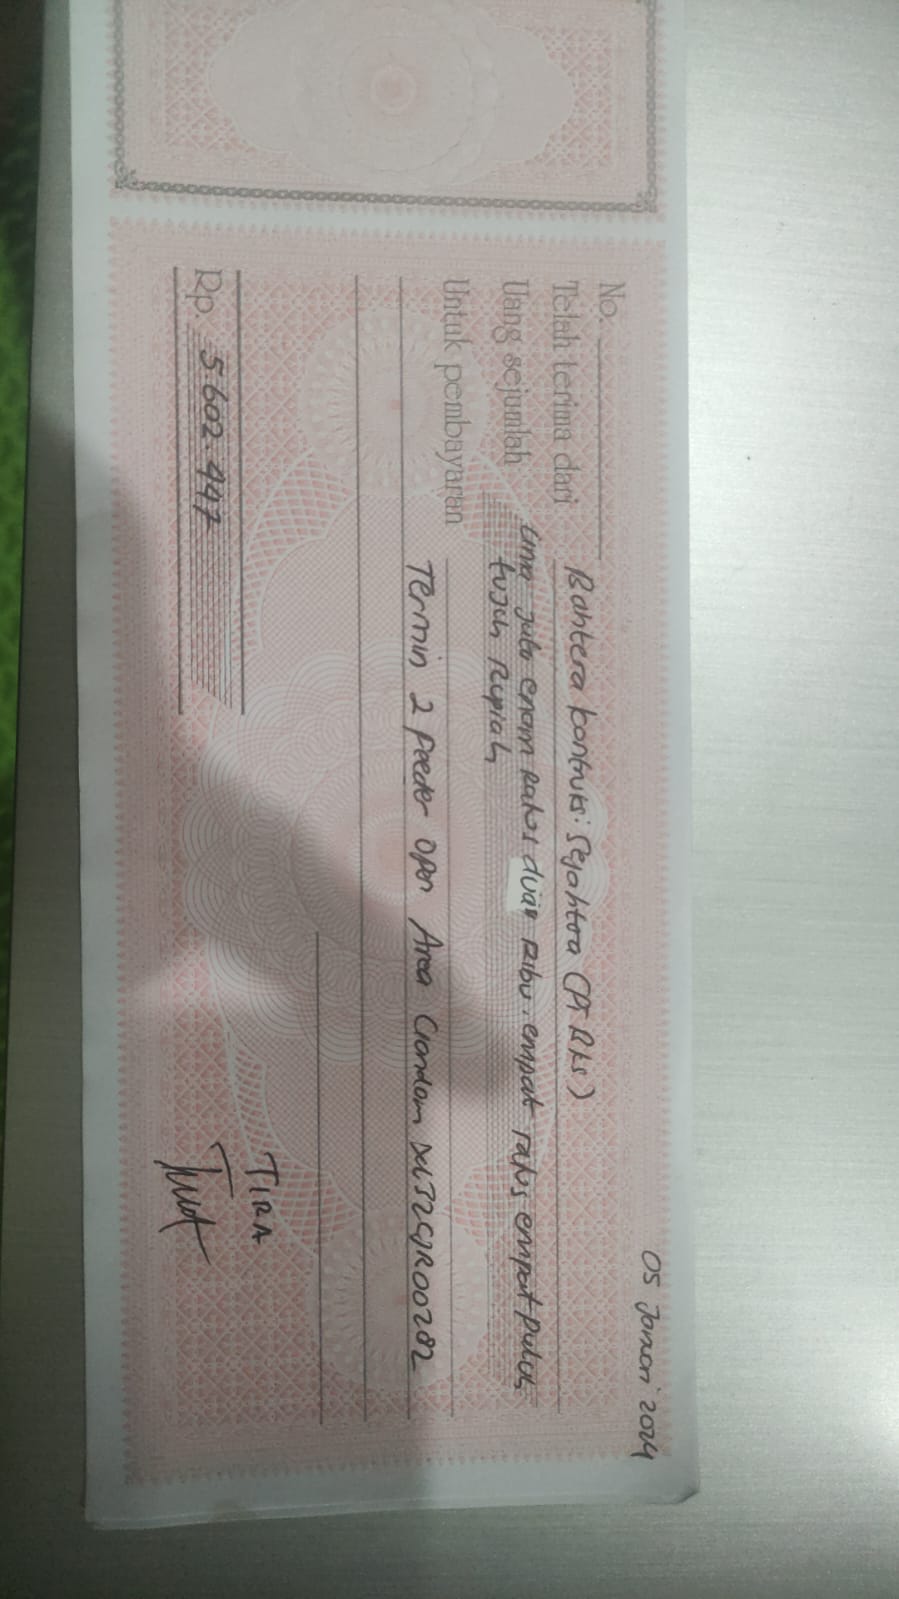 05 Januari 2024
No.
Telah terima dari Bahtera kontruksi Sejahtra (PT BKS)
Uang sejumlah Lima juta enam Ratus dua Ribu empat ratus empat puluh
tujuh Rupiah
Untuk pembayaran
Termin 2 Feeder Open Area Ciandam
TIRA
Rp. 5.602.447